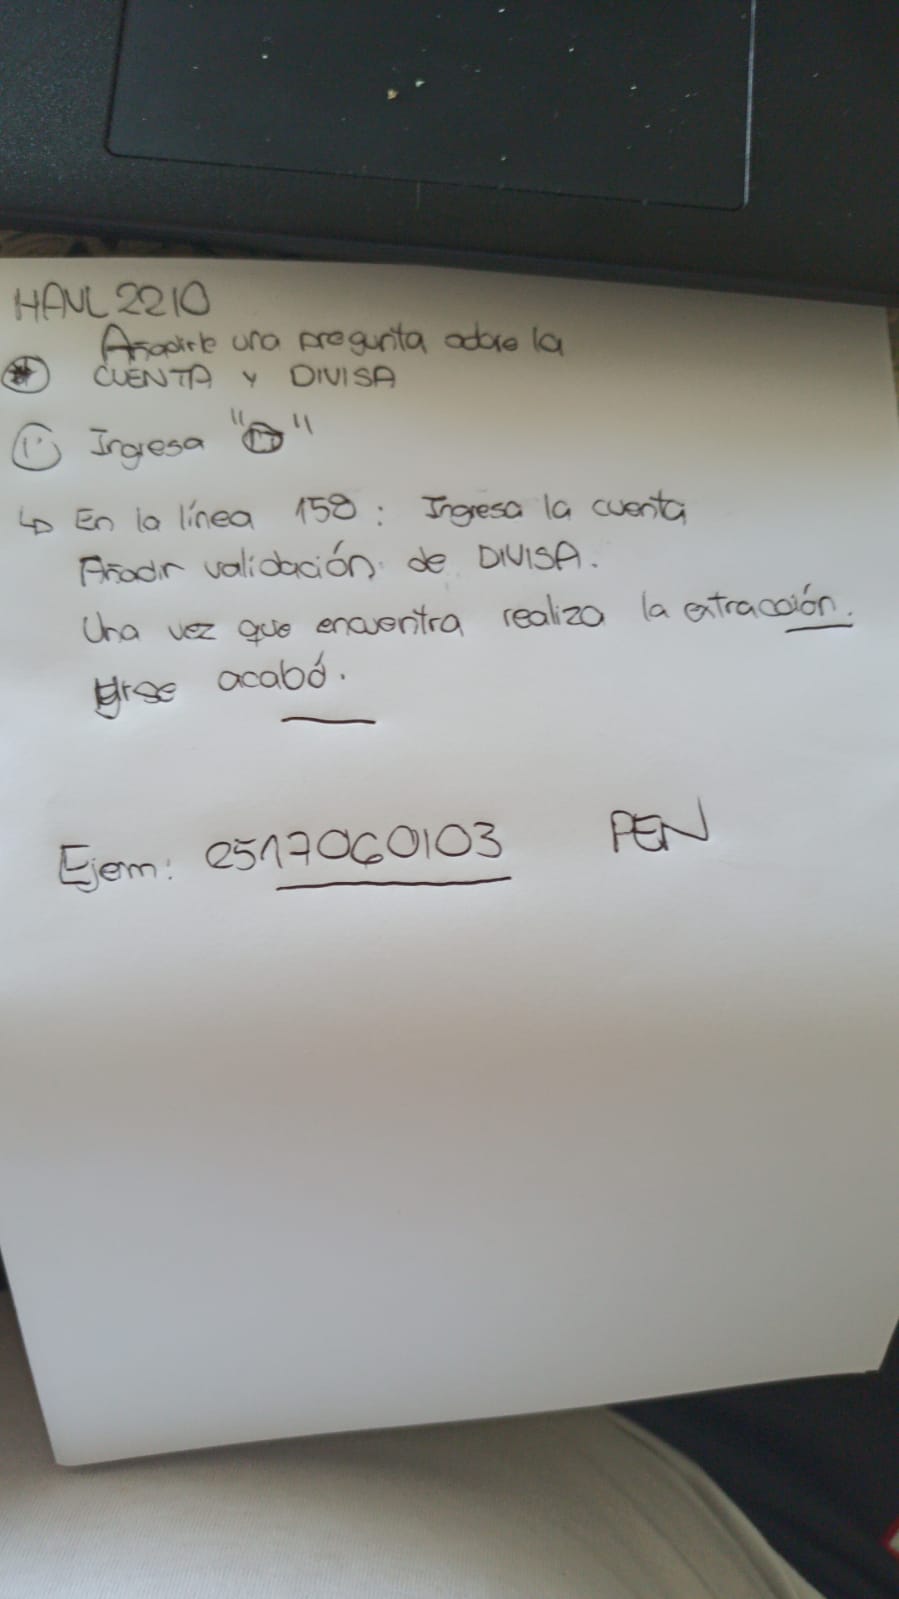 HAVL2210
Añadirle una pregunta sobre la
* CUENTA Y DIVISA
1. Ingresa " "
↳ En la línea 158: Ingresa la cuenta
Añadir validación de DIVISA.
Una vez que encuentra realiza la extracción.
se acabó.
Ejem: 2517060103 PEN